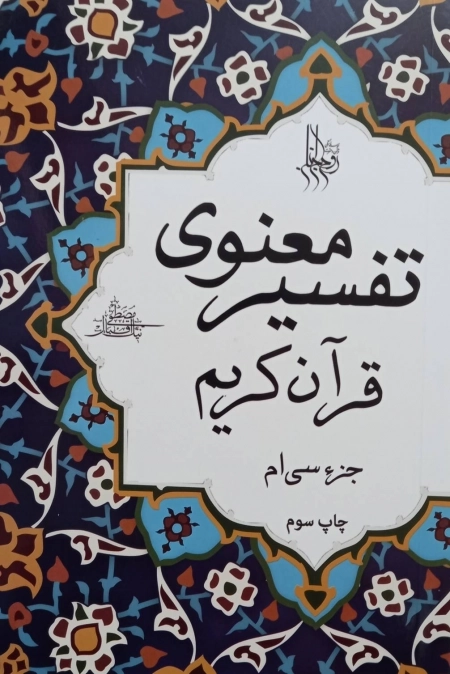 تفسیر معنوی
قرآن کریم
جزء سی ام
چاپ سوم